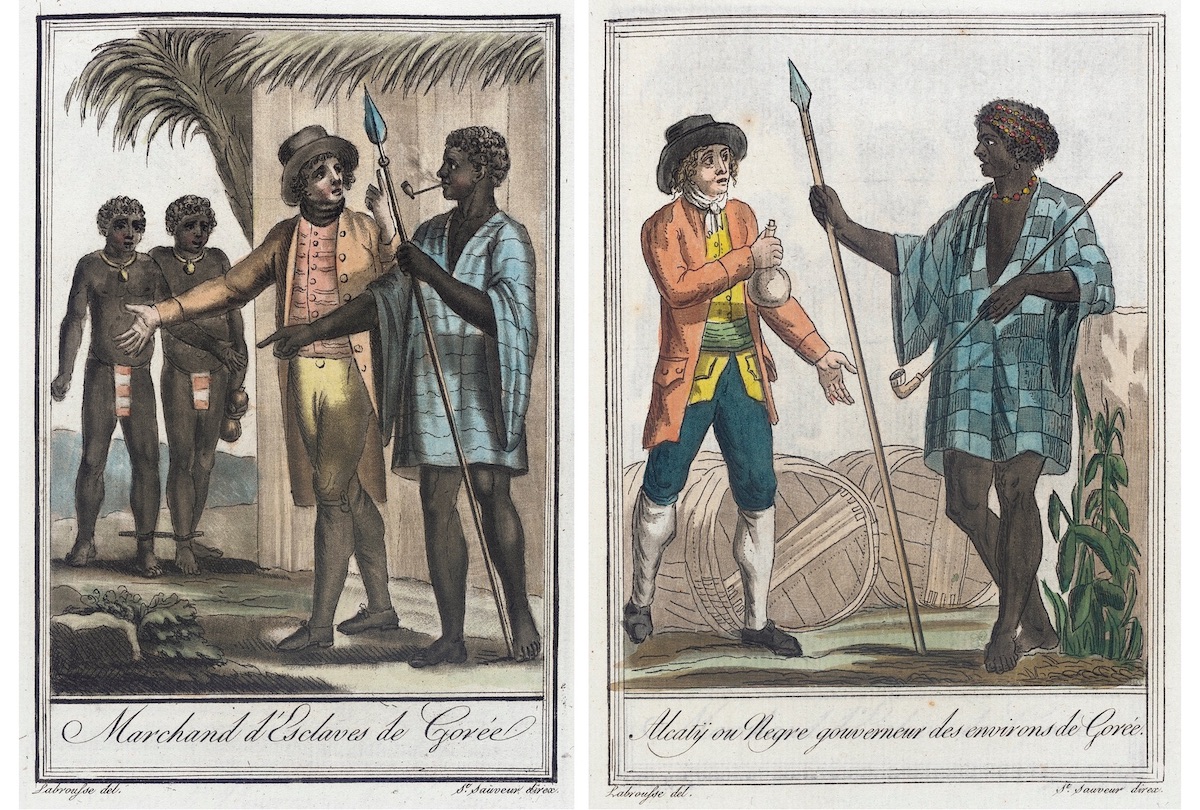 Marchand d'Esclaves de Gorée
Labrousse del.
St. Sauveur direx.
Alcatÿ ou Negre gouverneur des environs de Gorée.
Labrousse del.
St. Sauveur direx.